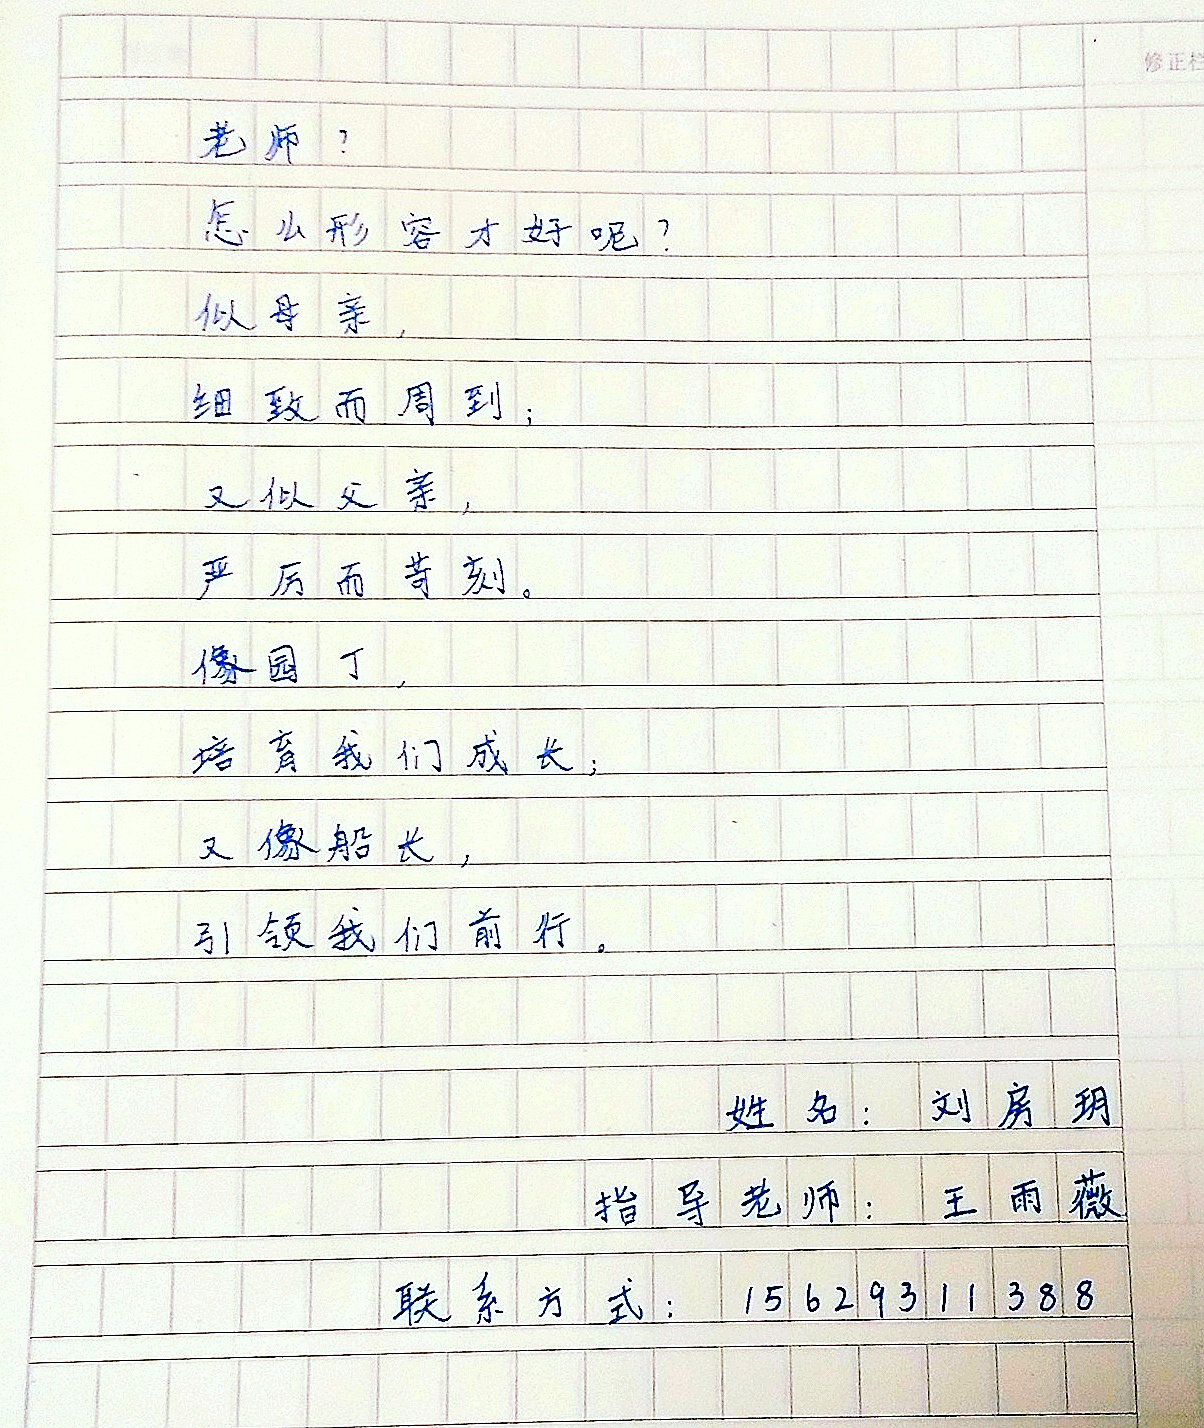 修正栏
老师？
怎么形容才好呢？
似母亲，
细致而周到；
又似父亲，
严厉而苛刻。
像园丁，
培育我们成长；
又像船长，
引领我们前行。
姓名：刘房玥
指导老师：王雨薇
联系方式：15629311388